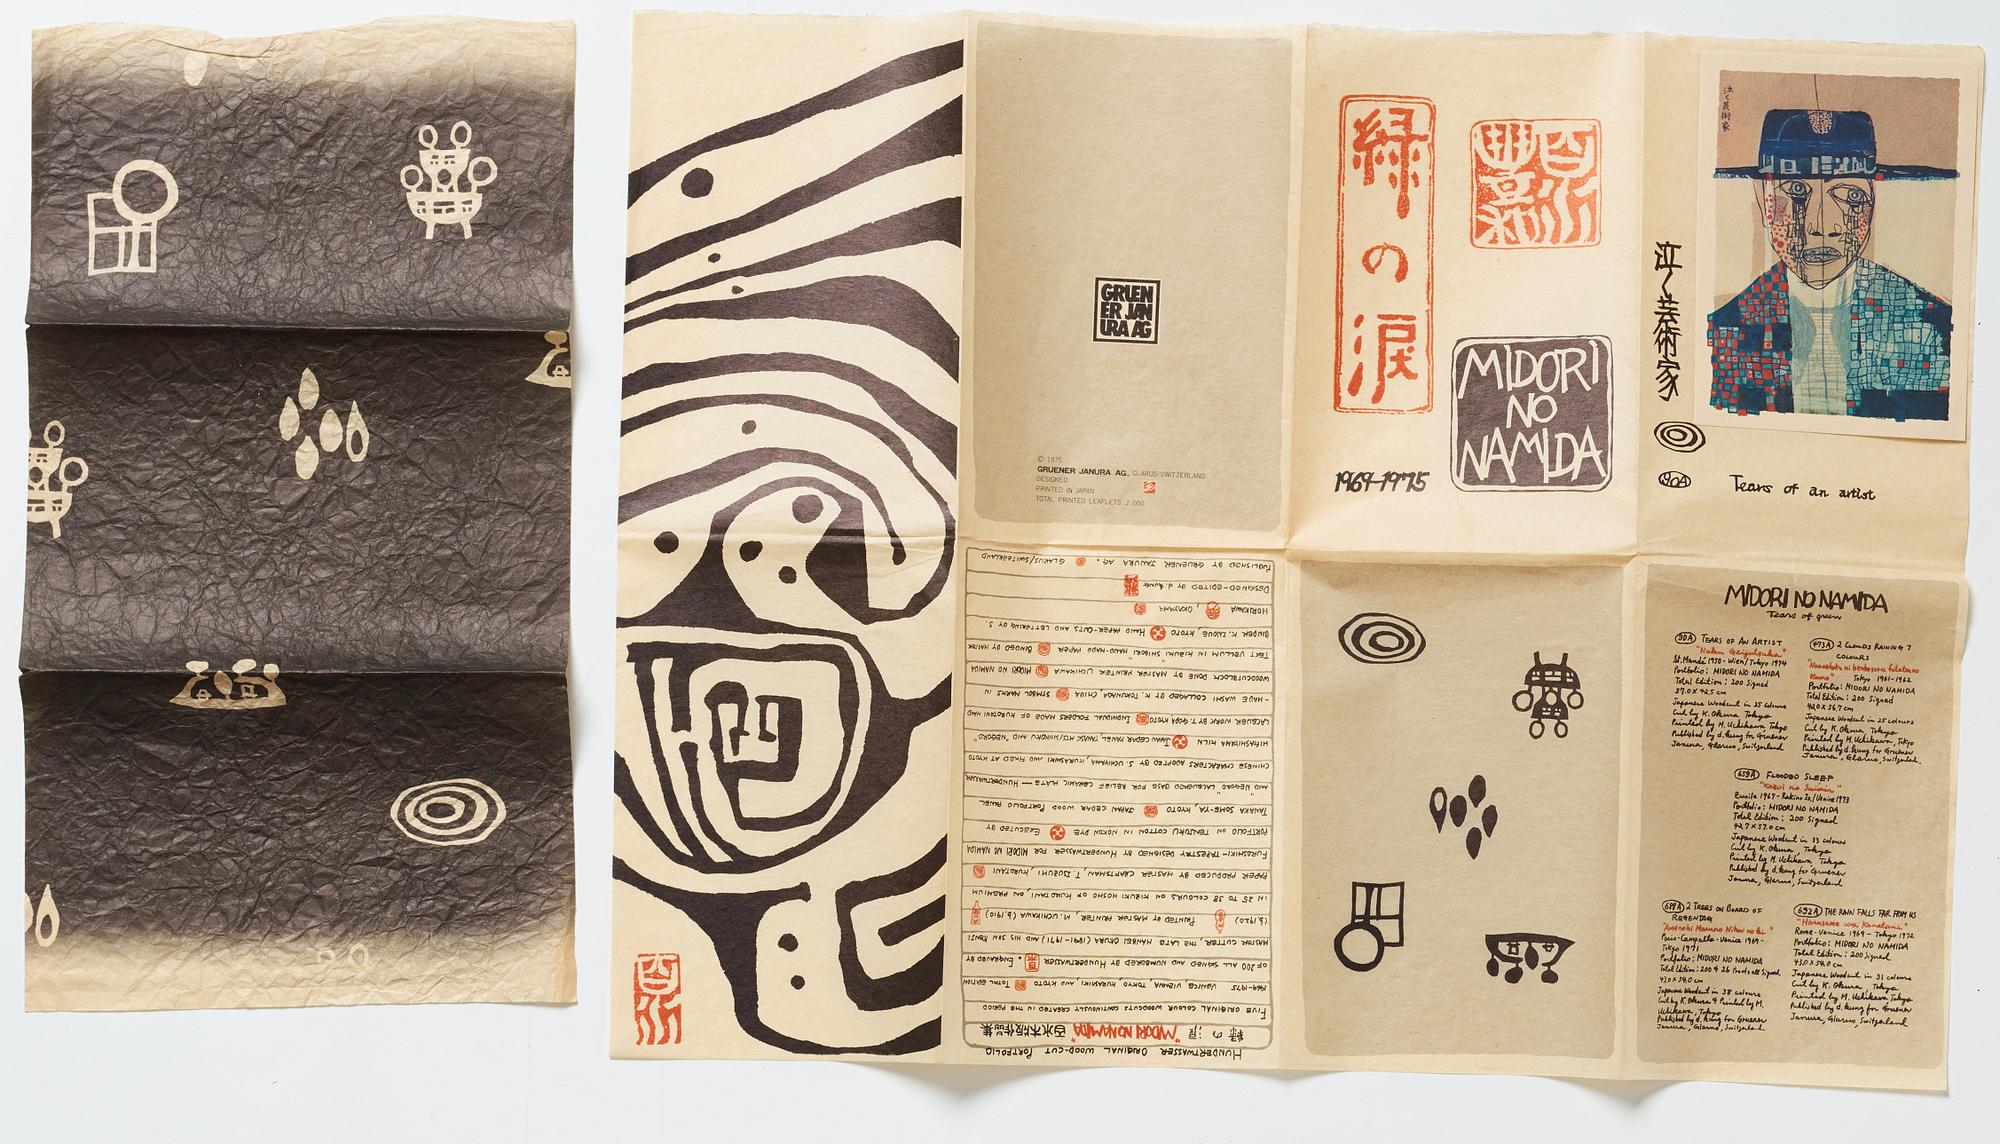 GRUEN
ER JAN
URA AG
© 1975
GRUENER JANURA AG., GLARUS/SWITZERLAND
DESIGNED
PRINTED IN JAPAN
TOTAL PRINTED LEAFLETS: 2,000
緑の涙
百水
MIDORI
NO
NAMIDA
1969-1975
泣く芸術家
泣く芸術家
90A
Tears of an artist
HUNDERTWASSER ORIGINAL WOOD-CUT PORTFOLIO
緑の涙 "MIDORI NO NAMIDA" 百水木版作品集
FIVE ORIGINAL COLOUR WOODCUTS CONTINUOUSLY CREATED IN THE PERIOD
1969-1975 VENICE VIENNA TOKYO KURASHIKI AND KYOTO. TOTAL EDITION
OF 200 ALL SIGNED AND NUMBERED BY HUNDERTWASSER. ENGRAVING BY
MASTER CUTTER, THE LATE HANBEI OKURA (1891-1971) AND HIS SON RENJI
(b.1920) PRINTED BY MASTER PRINTER, M. UCHIKAWA (b.1910)
IN 25 TO 38 COLOURS ON KIZUKI HOSHO OF KUROTANI, ON PREMIUM
PAPER PRODUCED BY MASTER CRAFTSMAN T. IZUMI, KUROTANI
FUROSHIKI-TAPESTRY DESIGNED BY HUNDERTWASSER FOR MIDORI NO NAMIDA
PORTFOLIO ON TENJIKU COTTON IN NOREN DYE EXECUTED BY
TANAKA SOME-YA, KYOTO. JAPAN CEDAR WOOD PORTFOLIO PANEL
AND NEGORO "LACQUERED BASE FOR RELIEF CERAMIC PLATE – HUNDERTWASSER
CHINESE CHARACTERS ADOPTED BY S. UCHIYAMA, KURASHIKI AND FIRED AT KYOTO
HIGASHIYAMA KILN JAPAN CEDAR PANEL AND "NEGORO"
LACQUER WORK BY T. GODA KYOTO INDIVIDUAL FOLDERS MADE OF KUROTANI HAND
MADE WASHI – COLLAGED BY K. TOKUNAGA, CHIBA SYMBOL MARKS IN
WOODCUTBLOCK DONE BY MASTER PRINTER UCHIKAWA MIDORI NO NAMIDA
TEXT VELLUM IN KIZUKI "SHIBORI" HAND-MADE PAPER BINDED BY MASTER
BINDER K. INOUE, KYOTO HAND PAPER-CUTS AND LETTERING BY S.
HORIKAWA, OKAYAMA
DESIGNED-EDITED BY d. Kung
PUBLISHED BY GRUENER JANURA AG. GLARUS/SWITZERLAND
百水
MIDORI NO NAMIDA
Tears of green
90A TEARS OF AN ARTIST
"Naku Geijutsuka"
St. Mandé 1950 - Wien/Tokyo 1974
Portfolio: MIDORI NO NAMIDA
Total Edition: 200 Signed
37.0 x 42.5 cm
Japanese Woodcut in 25 colours
Cut by K. Okura Tokyo
Printed by M. Uchikawa Tokyo
Published by d. kung for Gruener
Janura, Glarus, Switzerland
473A 2 CLOUDS RAINING 7
COLOURS
Kumo" Tokyo 1961-1962
Portfolio: MIDORI NO NAMIDA
Total Edition: 200 Signed
42.0 x 56.7 cm
Japanese Woodcut in 25 colours
Cut by K. Okura Tokyo
Printed by M. Uchikawa, Tokyo
Published by d. kung for Gruener
Janura, Glarus, Switzerland.
659A FLOODED SLEEP
"Kozui no Suimin"
Zwoite 1967 - Rakino Is./Venice 1973
Portfolio: MIDORI NO NAMIDA
Total Edition: 200 Signed
42.7 x 57.0 cm
Japanese Woodcut in 33 colours
Cut by K. Okura, Tokyo
Printed by M. Uchikawa, Tokyo
Published by d. kung for Gruener
Janura, Glarus, Switzerland
689A 2 TREES ON BOARD OF
REGENTAG
"Amenohi Maruno Nihon no ki"
Paris-Campalto-Venice 1969-
Tokyo 1971
Portfolio: MIDORI NO NAMIDA
Total Edition: 200 & 26 Proofs all Signed
43.0 x 54.0 cm
Japanese Woodcut in 38 colours
Cut by K. Okura & Printed by M.
Uchikawa, Tokyo
Published by d. kung for Gruener
Janura, Glarus, Switzerland
692A THE RAIN FALLS FAR FROM US
"Harusame wa Kanatani"
Rome-Venice 1969 - Tokyo 1972
Portfolio: MIDORI NO NAMIDA
Total Edition: 200 Signed
43.0 x 54.0 cm
Japanese Woodcut in 31 colours
Cut by K. Okura, Tokyo
Printed by M. Uchikawa Tokyo
Published by d. kung for Gruener
Janura, Glarus, Switzerland